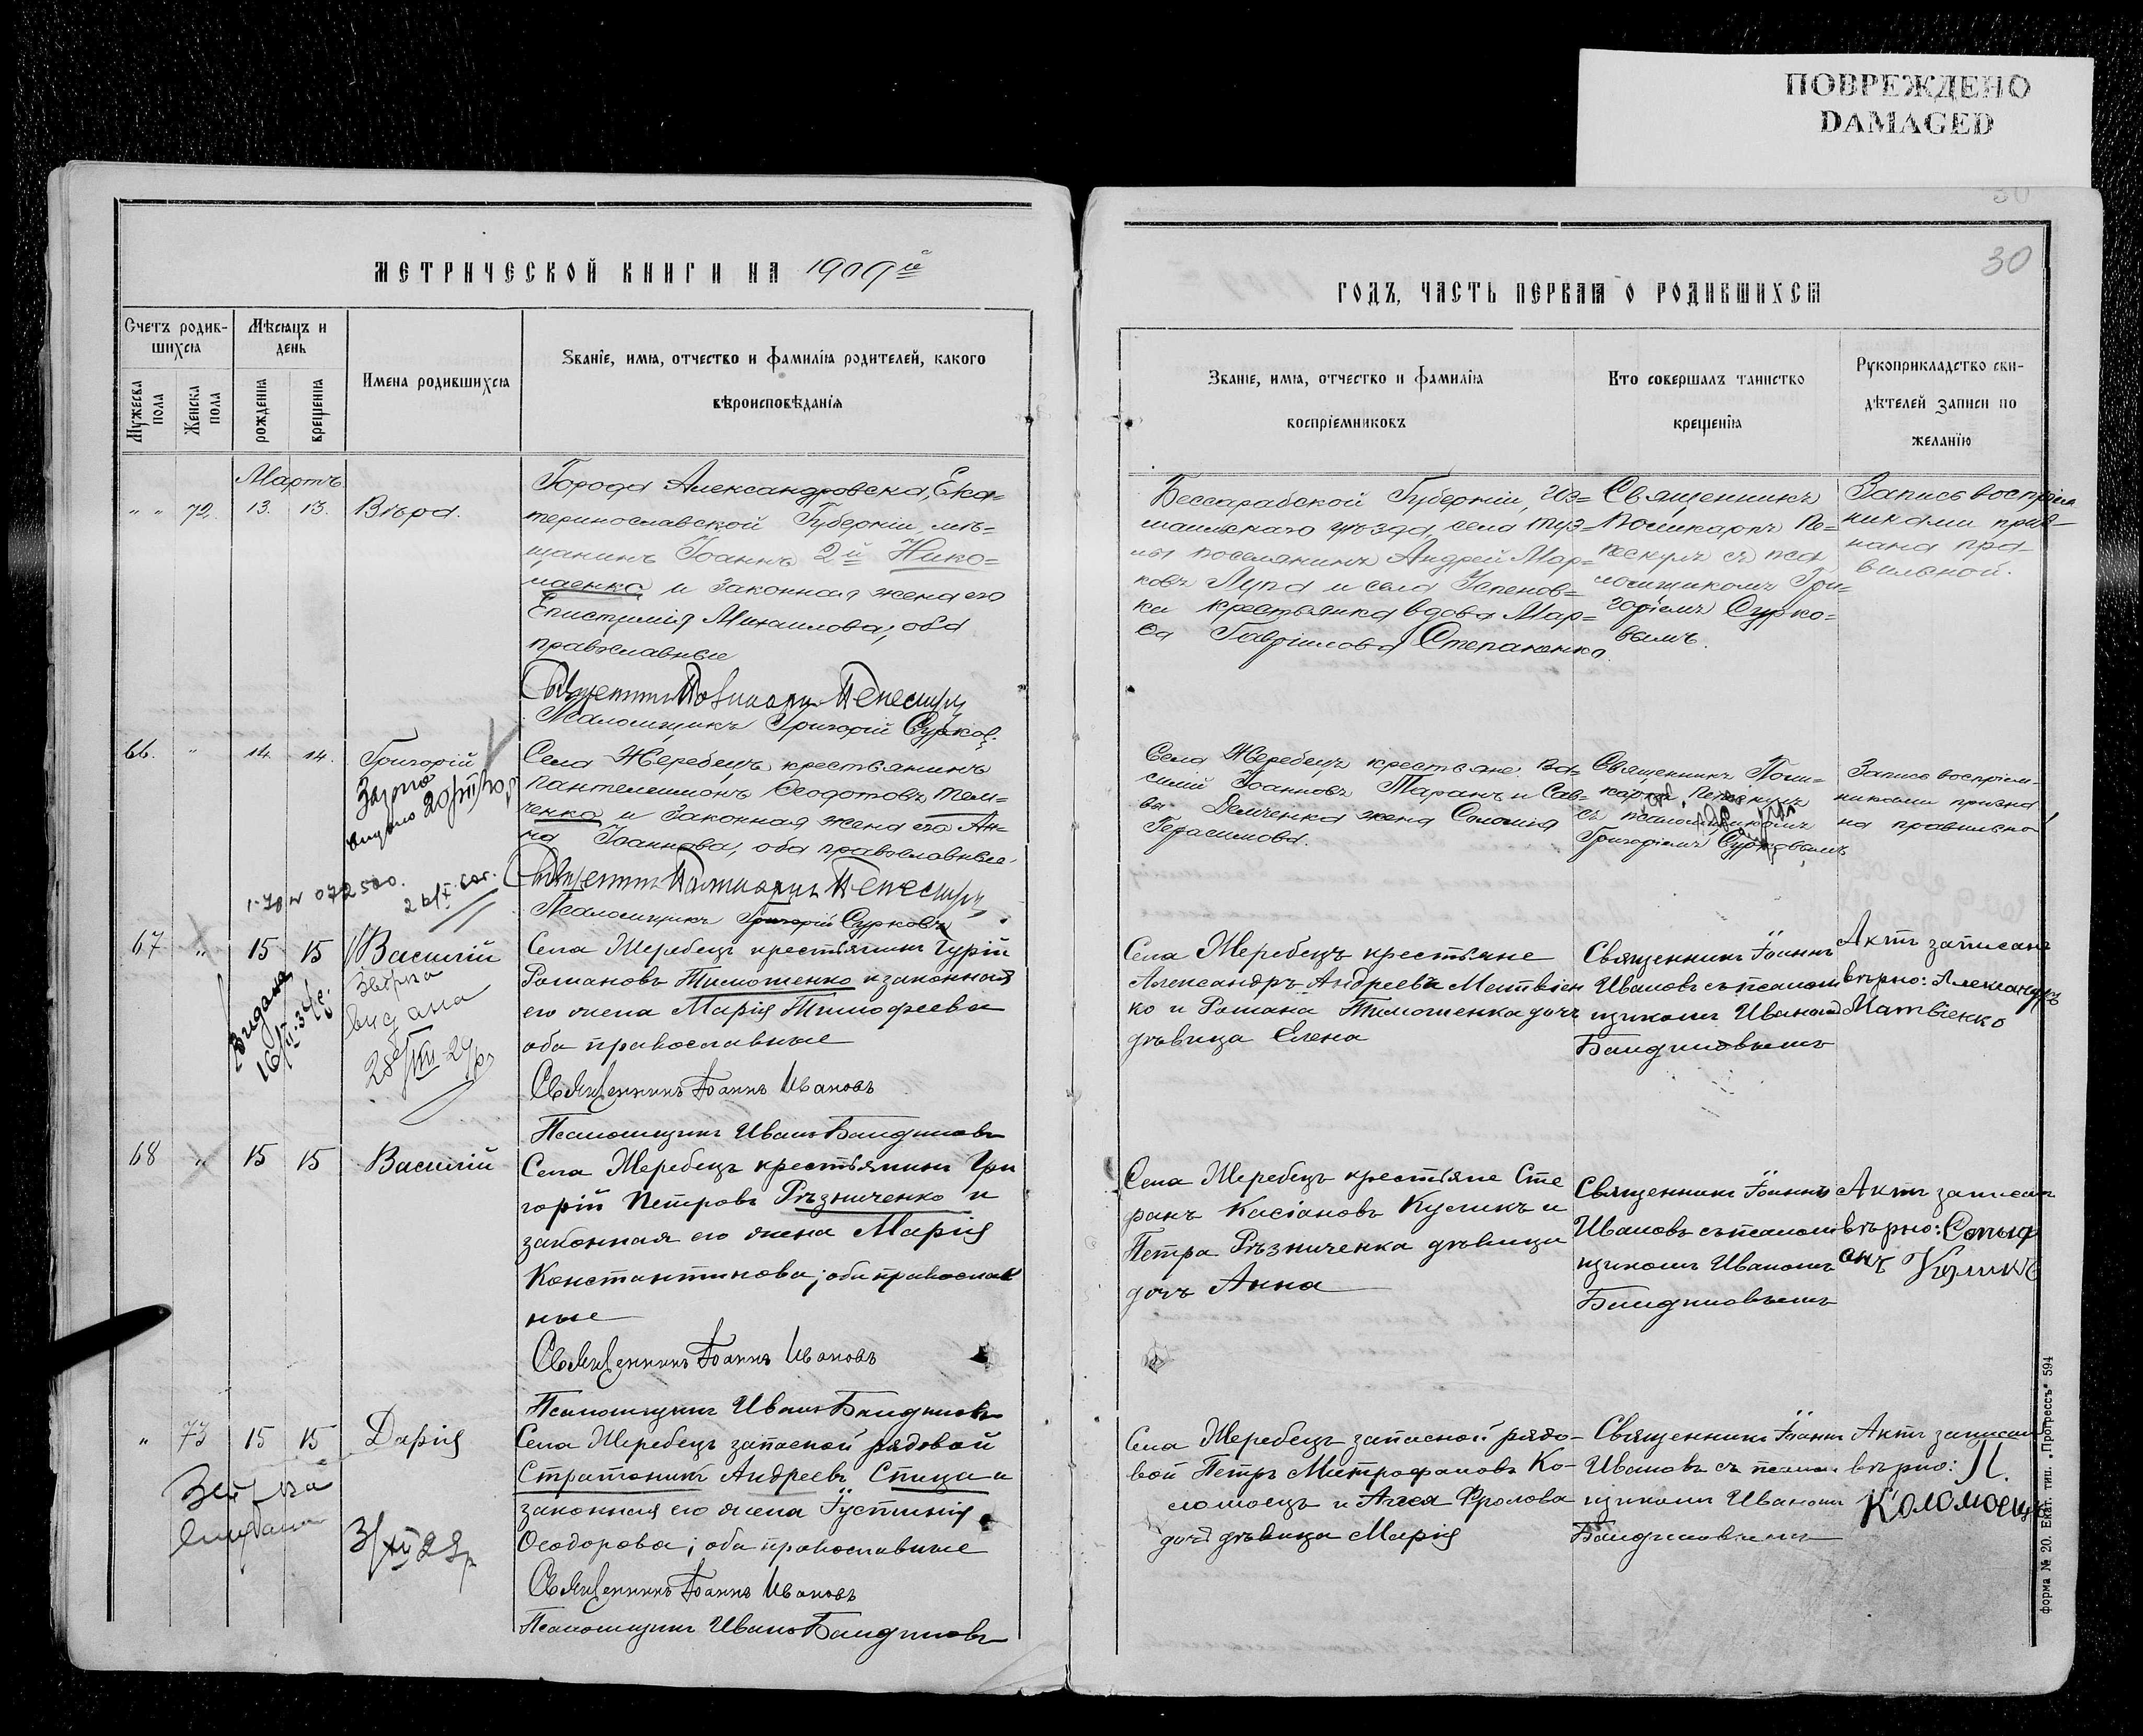 ПОВРЕЖДЕНО
DAMAGED
30
МЕТРИЧЕСКОЙ КНИГИ НА 1909й
ГОДЪ, ЧАСТЬ ПЕРВАЯ О РОДИВШИХСЯ
Счетъ родив-
шихся
Мужеска пола
Женска пола
Мѣсяцъ и
день
рожденія
крещенія
Имена родившихся
Званіе, имя, отчество и фамилія родителей, какого
вѣроисповѣданія
Званіе, имя, отчество и фамилія
воспріемниковъ
Кто совершалъ таинство
крещенія
Рукоприкладство сви-
дѣтелей записи по
желанію
Мартъ
" " 72 13. 13. Вѣра.
Города Александровска, Ека-
теринославской Губерніи мѣ-
щанинъ Іоаннъ 2й Нико-
лаенко и законная жена его
Епистимія Михаилова, оба
православные
Псаломщикъ Григорій Сурковъ
Бессарабской Губерніи, Из-
маильскаго уѣзда, села
поселянинъ Андрей Мар-
ковъ Лупа и села Успенов-
ки крестьянка вдова Мар-
Гавріилова Степаненко.
Священникъ
съ пса
ломщикомъ Гри-
горіемъ Сурко-
вымъ.
Запись воспріем
никами приз-
нана пра-
вильной.
66. " 14. 14. Григорій
Села Жеребецъ крестьянинъ
Пантелеимонъ Ѳеодотовъ Тем-
ченко и законная жена его Ан-
на Іоаннова, оба православные.
Псаломщикъ Григорій Сурковъ
Села Жеребецъ крестьяне Ва-
силій Іоанновъ Таранъ и Сав-
вы Демченка жена Соломія
Герасимова.
Священникъ Поли-
съ псаломщикомъ
Григоріемъ Сурковымъ
Запись воспріем-
никами призна
на правильной
67 " 15 15 Василій
видана
Села Жеребецъ крестьянинъ Гурій
Романовъ Тимошенко и законная
его жена Марія Тимофеева
оба православные
Священникъ Іоаннъ Ивановъ
Псаломщикъ Иванъ
Села Жеребецъ крестьяне
Александръ Андреевъ Матвіен
ко и Романа Тимошенка дочь
дѣвица Елена
Священникъ Іоаннъ
Ивановъ съ псалом
щикомъ Иваномъ
Актъ записанъ
вѣрно: Александръ
Матвіенко
68 " 15 15 Василій
Села Жеребецъ крестьянинъ Гри
горій Петровъ Рѣзниченко и
законная его жена Марія
Константинова; оба православ
ные
Священникъ Іоаннъ Ивановъ
Псаломщикъ Иванъ
Села Жеребецъ крестьяне Сте
фанъ Касіановъ Куликъ и
Петра Рѣзниченка дѣвица
дочь Анна
Священникъ Іоаннъ
Ивановъ съ псалом
щикомъ Иваномъ
Актъ записанъ
вѣрно:
Куликъ
" 73 15 15 Дарія
Села Жеребецъ запасной рядовой
Стратоникъ Андреевъ Спица и
законная его жена Іустинія
Ѳеодорова; оба православные
Священникъ Іоаннъ Ивановъ
Псаломщикъ Иванъ
Села Жеребецъ запасной рядо-
вой Петръ Митрофановъ Ко-
ломоецъ и Фролова
дочь дѣвица Марія
Священникъ Іоаннъ
Ивановъ съ псалом
щикомъ Иваномъ
Актъ записанъ
вѣрно: П.
Коломоецъ
форма № 20. Екат. тип. „Прогрессъ" 594